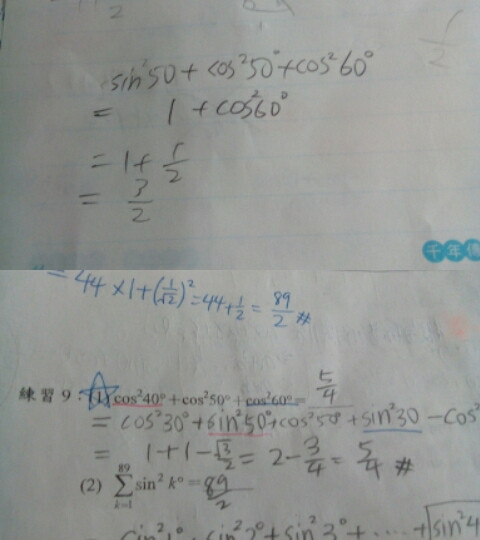 sin²50 + cos²50° + cos²60°
= 1 + cos²60°
= 1 + 1/2
= 3/2
千年
= 44 × 1 + (1/√2)² = 44 + 1/2 = 89/2 #
練習 9: (1) cos²40° + cos²50° + cos²60° = 5/4
= cos²30° + sin²50° + cos²50° + sin²30 - cos²
= 1 + 1 - √3/2 = 2 - 3/4 = 5/4 #
(2) 89 Σ k=1 sin² k° = 89/2